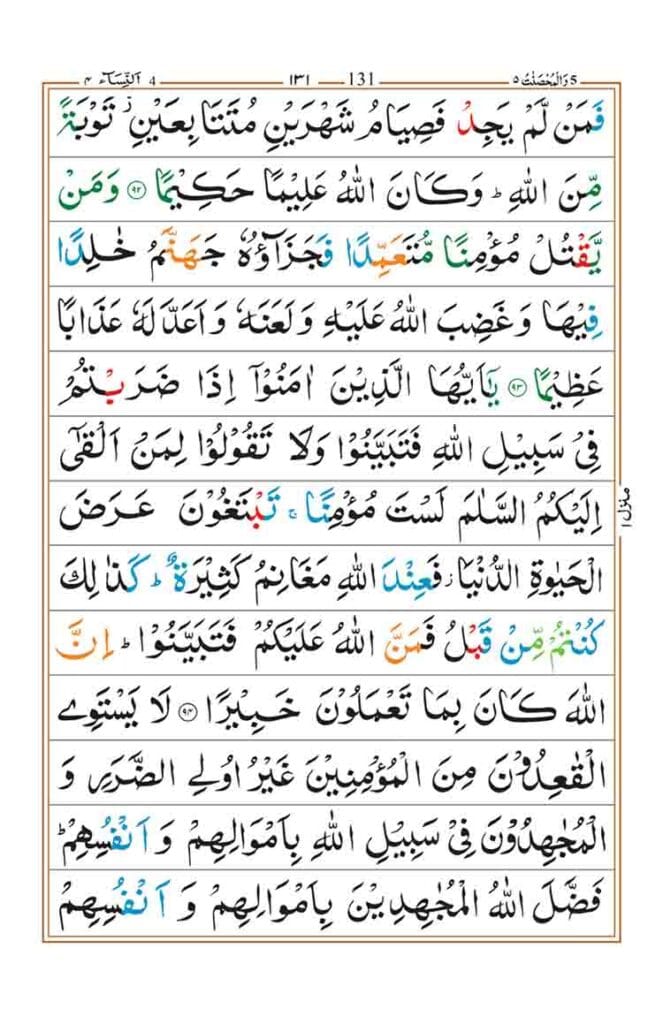 وَالْمُحْصَنٰتُ ٥ 5 131 ١٣١ 4 اَلنِّسَآء ٤
فَمَنْ لَّمْ یَجِدْ فَصِیَامُ شَهْرَیْنِ مُتَتَابِعَیْنِ ز تَوْبَةً
مِّنَ اللّٰهِ ؕ وَكَانَ اللّٰهُ عَلِیْمًا حَكِیْمًا ۝٩٢ وَمَنْ
یَّقْتُلْ مُؤْمِنًا مُّتَعَمِّدًا فَجَزَآؤُهٗ جَهَنَّمُ خٰلِدًا
فِیْهَا وَغَضِبَ اللّٰهُ عَلَیْهِ وَلَعَنَهٗ وَاَعَدَّ لَهٗ عَذَابًا
عَظِیْمًا ۝٩٣ یٰۤاَیُّهَا الَّذِیْنَ اٰمَنُوْۤا اِذَا ضَرَبْتُمْ
فِیْ سَبِیْلِ اللّٰهِ فَتَبَیَّنُوْا وَلَا تَقُوْلُوْا لِمَنْ اَلْقٰۤی
اِلَیْكُمُ السَّلٰمَ لَسْتَ مُؤْمِنًا ۚ تَبْتَغُوْنَ عَرَضَ
الْحَیٰوةِ الدُّنْیَا ز فَعِنْدَ اللّٰهِ مَغَانِمُ كَثِیْرَةٌ ؕ كَذٰلِكَ
كُنْتُمْ مِّنْ قَبْلُ فَمَنَّ اللّٰهُ عَلَیْكُمْ فَتَبَیَّنُوْا ؕ اِنَّ
اللّٰهَ كَانَ بِمَا تَعْمَلُوْنَ خَبِیْرًا ۝٩٤ لَا یَسْتَوِی
الْقٰعِدُوْنَ مِنَ الْمُؤْمِنِیْنَ غَیْرُ اُولِی الضَّرَرِ وَ
الْمُجٰهِدُوْنَ فِیْ سَبِیْلِ اللّٰهِ بِاَمْوَالِهِمْ وَ اَنْفُسِهِمْ ؕ
فَضَّلَ اللّٰهُ الْمُجٰهِدِیْنَ بِاَمْوَالِهِمْ وَ اَنْفُسِهِمْ
منزل ١